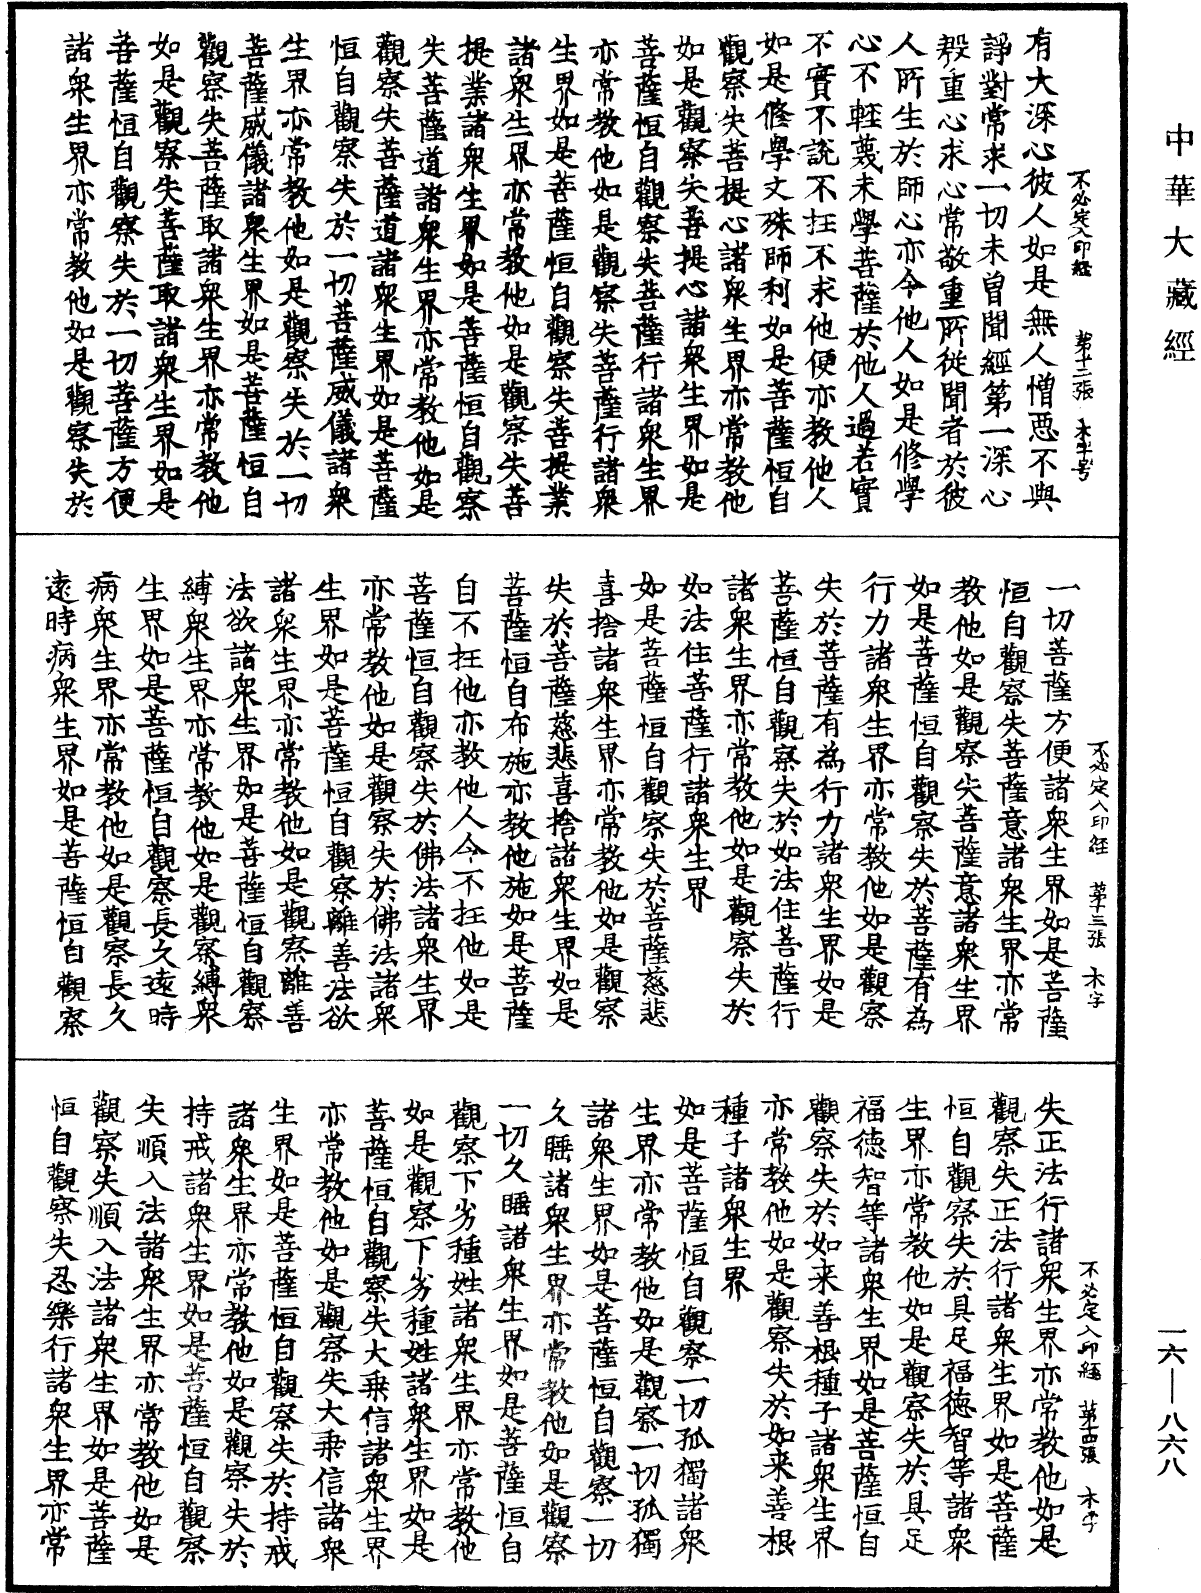 中華大藏經
不必定入印經 第十二張 木字号
有大深心彼人如是無人憎惡不與
諍對常求一切未曾聞經第一深心
殷重心求心常敬重所從聞者於彼
人所生於師心亦令他人如是修學
心不輕蔑未學菩薩於他人過若實
不實不說不抂不求他便亦教他人
如是修學文殊師利如是菩薩恒自
觀察失菩提心諸衆生界亦常教他
如是觀察失菩提心諸衆生界如是
菩薩恒自觀察失菩薩行諸衆生界
亦常教他如是觀察失菩薩行諸衆
生界如是菩薩恒自觀察失菩提業
諸衆生界亦常教他如是觀察失菩
提業諸衆生界如是菩薩恒自觀察
失菩薩道諸衆生界亦常教他如是
觀察失菩薩道諸衆生界如是菩薩
恒自觀察失於一切菩薩威儀諸衆
生界亦常教他如是觀察失於一切
菩薩威儀諸衆生界如是菩薩恒自
觀察失菩薩取諸衆生界亦常教他
如是觀察失菩薩取諸衆生界如是
菩薩恒自觀察失於一切菩薩方便
諸衆生界亦常教他如是觀察失於
不必定入印經 第十三張 木字
一切菩薩方便諸衆生界如是菩薩
恒自觀察失菩薩意諸衆生界亦常
教他如是觀察失菩薩意諸衆生界
如是菩薩恒自觀察失於菩薩有為
行力諸衆生界亦常教他如是觀察
失於菩薩有為行力諸衆生界如是
菩薩恒自觀察失於如法住菩薩行
諸衆生界亦常教他如是觀察失於
如法住菩薩行諸衆生界
如是菩薩恒自觀察失於菩薩慈悲
喜捨諸衆生界亦常教他如是觀察
失於菩薩慈悲喜捨諸衆生界如是
菩薩恒自布施亦教他施如是菩薩
自不抂他亦教他人令不抂他如是
菩薩恒自觀察失於佛法諸衆生界
亦常教他如是觀察失於佛法諸衆
生界如是菩薩恒自觀察離善法欲
諸衆生界亦常教他如是觀察離善
法欲諸衆生界如是菩薩恒自觀察
縛衆生界亦常教他如是觀察縛衆
生界如是菩薩恒自觀察長久遠時
病衆生界亦常教他如是觀察長久
遠時病衆生界如是菩薩恒自觀察
不必定入印經 第十四張 木字
失正法行諸衆生界亦常教他如是
觀察失正法行諸衆生界如是菩薩
恒自觀察失於具足福德智等諸衆
生界亦常教他如是觀察失於具足
福德智等諸衆生界如是菩薩恒自
觀察失於如来善根種子諸衆生界
亦常教他如是觀察失於如来善根
種子諸衆生界
如是菩薩恒自觀察一切孤獨諸衆
生界亦常教他如是觀察一切孤獨
諸衆生界如是菩薩恒自觀察一切
久睡諸衆生界亦常教他如是觀察
一切久睡諸衆生界如是菩薩恒自
觀察下劣種姓諸衆生界亦常教他
如是觀察下劣種姓諸衆生界如是
菩薩恒自觀察失大乗信諸衆生界
亦常教他如是觀察失大乗信諸衆
生界如是菩薩恒自觀察失於持戒
諸衆生界亦常教他如是觀察失於
持戒諸衆生界如是菩薩恒自觀察
失順入法諸衆生界亦常教他如是
觀察失順入法諸衆生界如是菩薩
恒自觀察失忍樂行諸衆生界亦常
一六—八六八